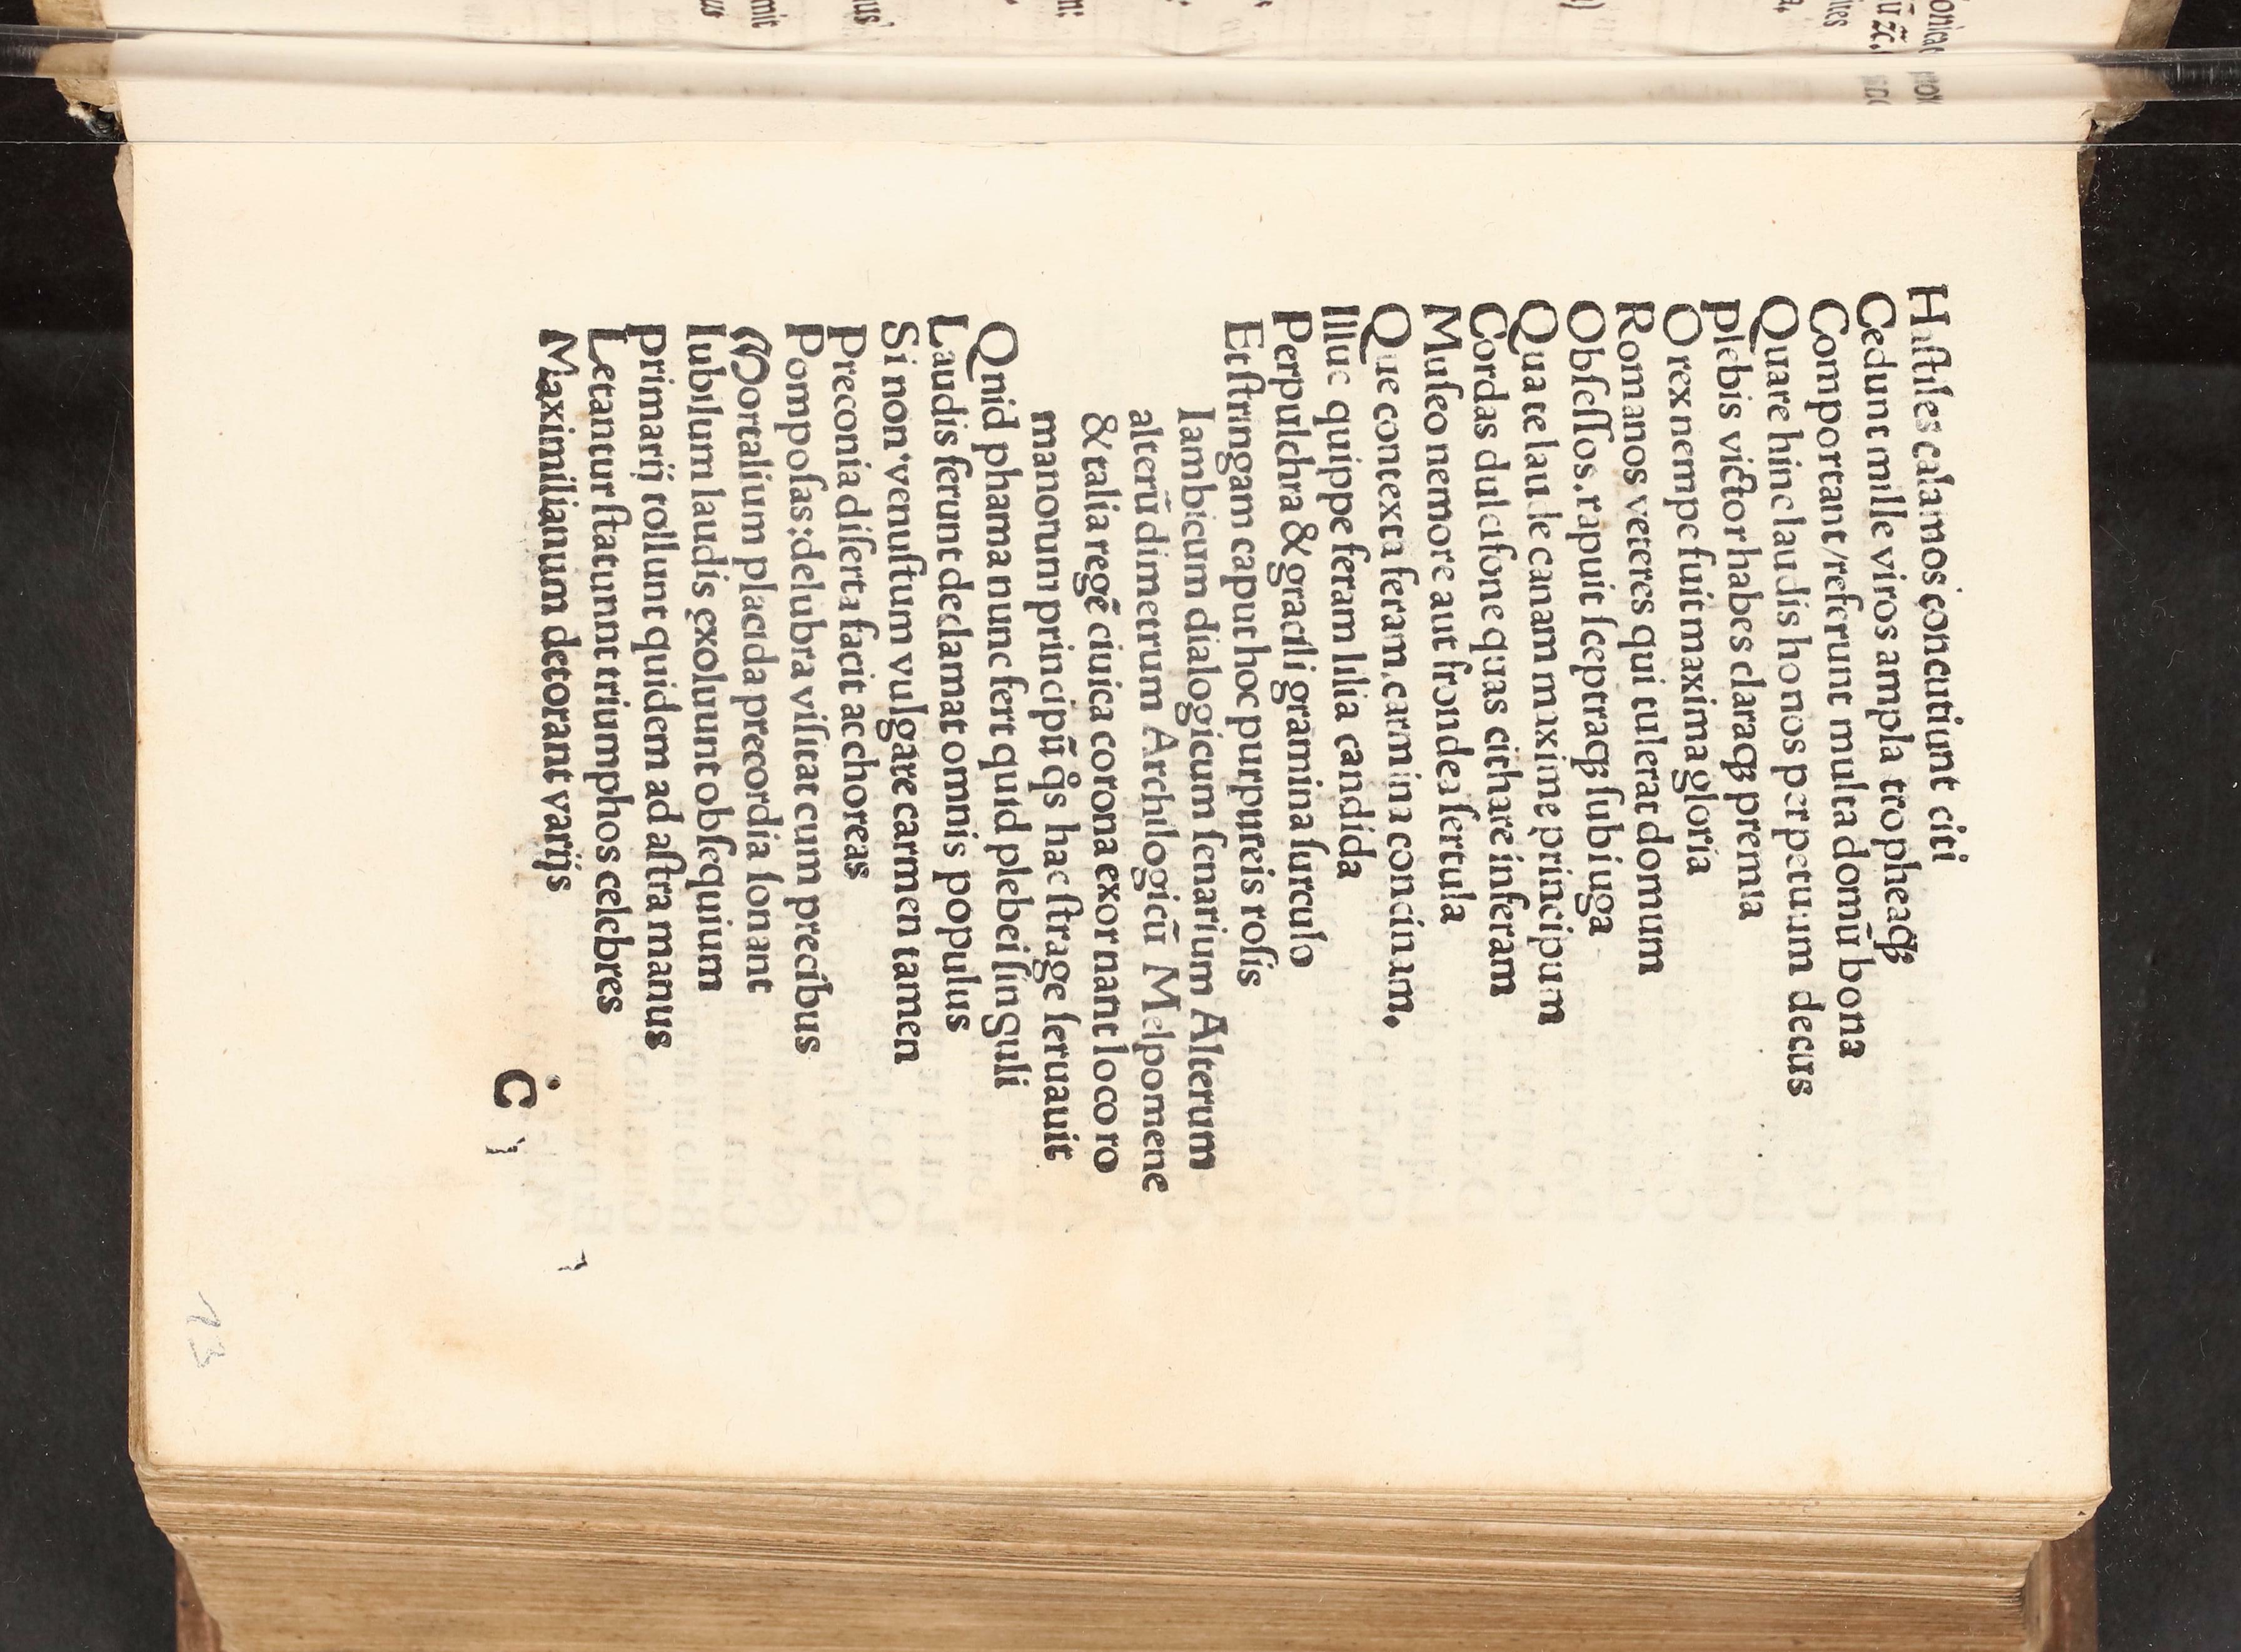 Haſtiles calamos concutiunt citi
Cedunt mille viros ampla tropheaqꝫ
Comportant/referunt multa domū bona
Quare hinc laudis honos perpetuum decus
Plebis victor habes claraqꝫ premia
O rex nempe fuit maxima gloria
Romanos veteres qui tulerat domum
Obſeſſos.rapuit ſceptraqꝫ ſub iuga
Qua te laude canam maxime principum
Cordas dulciſone quas cithare inſeram
Muſeo nemore aut frondea ſertula
Que contexta feram.carmina concinam.
Illuc quippe feram lilia candida
Perpulchra & gracili gramina ſurculo
Et ſtringam caput hoc purpureis roſis
Iambicum dialogicum ſenarium Alterum
alterū dimetrum Archilogicū Melpomene
& talia regē ciuica corona exornant loco ro
manorum principū qͦs hac ſtrage ſeruauit
Qnid phama nunc fert quid plebei ſinguli
Laudis ferunt declamat omnis populus
Si non venuſtum vulgare carmen tamen
Preconia diſerta facit ac choreas
Pompoſas:delubra viſitat cum precibus
Mortalium placida precordia ſonant
Iubilum laudis exoluunt obſequium
Primarij tollunt quidem ad aſtra manus
Letantur ſtatunnt triumphos celebres
Maximilianum decorant varijs
C
13